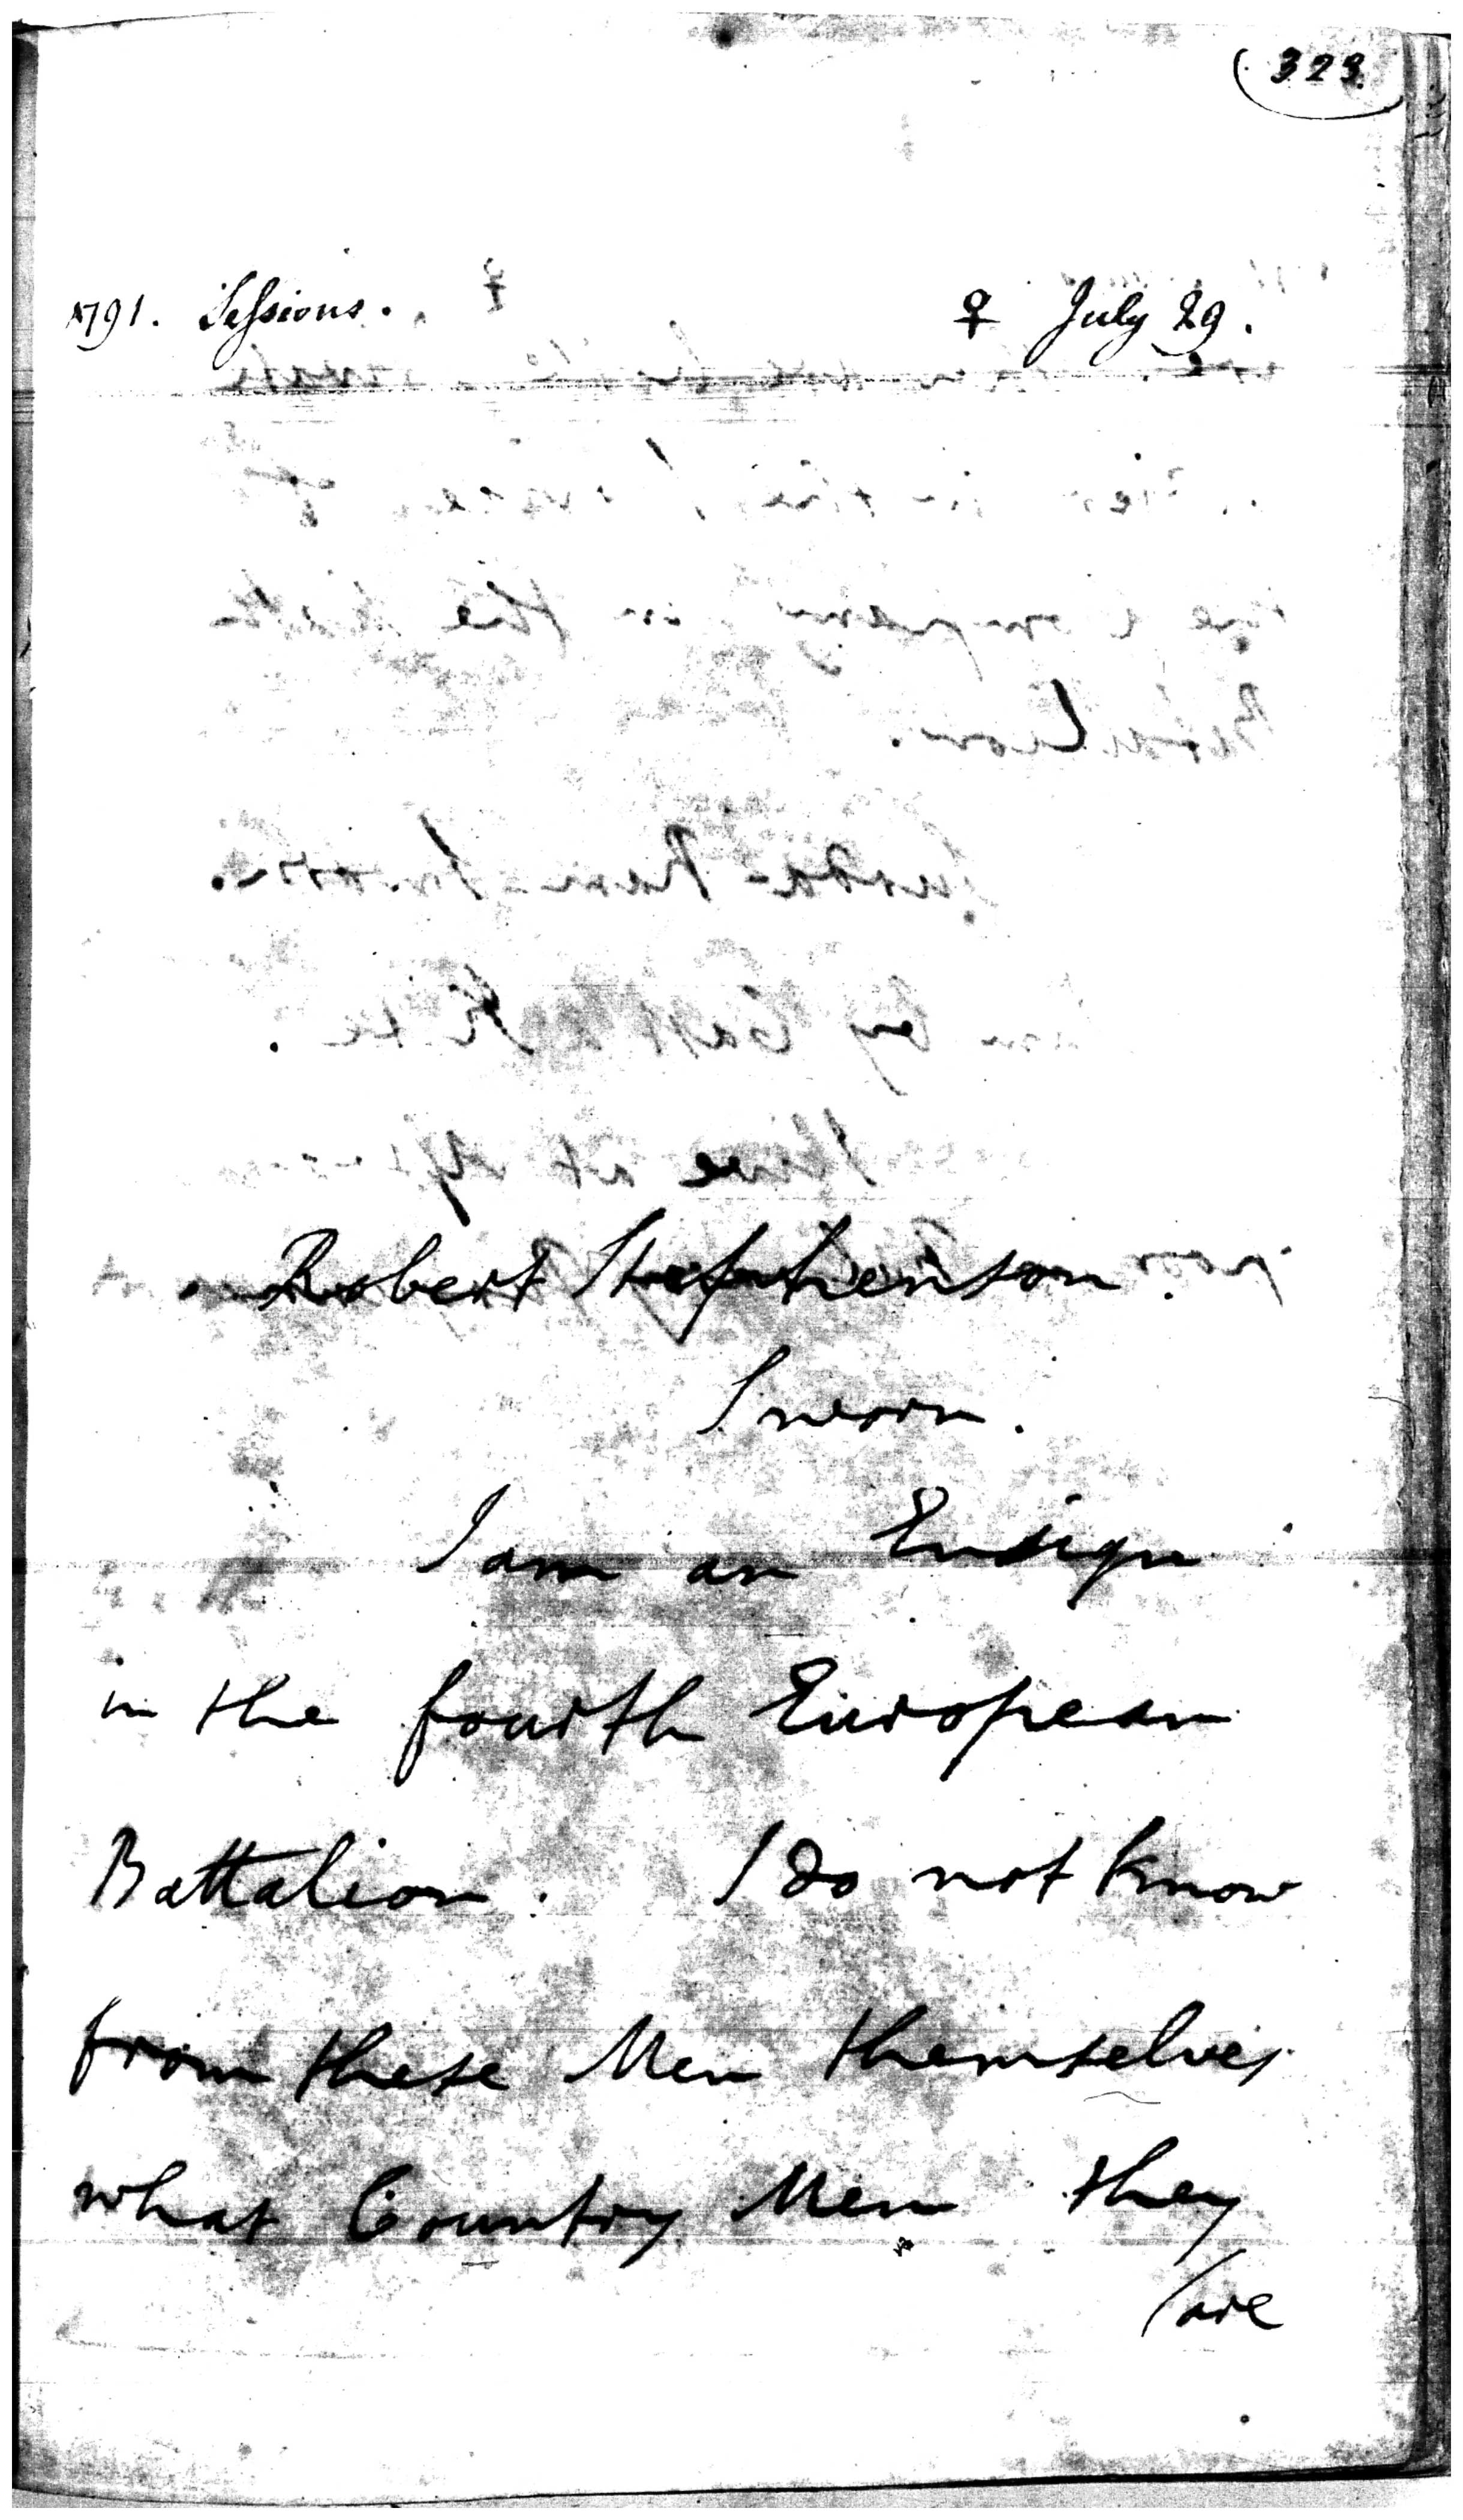 (323
1791. Sessions. ♀ July 29.
Robert Stephenson.
Sworn.
I am an Ensign
in the fourth European
Battalion. I do not know
from these Men themselves
what Country Men they
/are